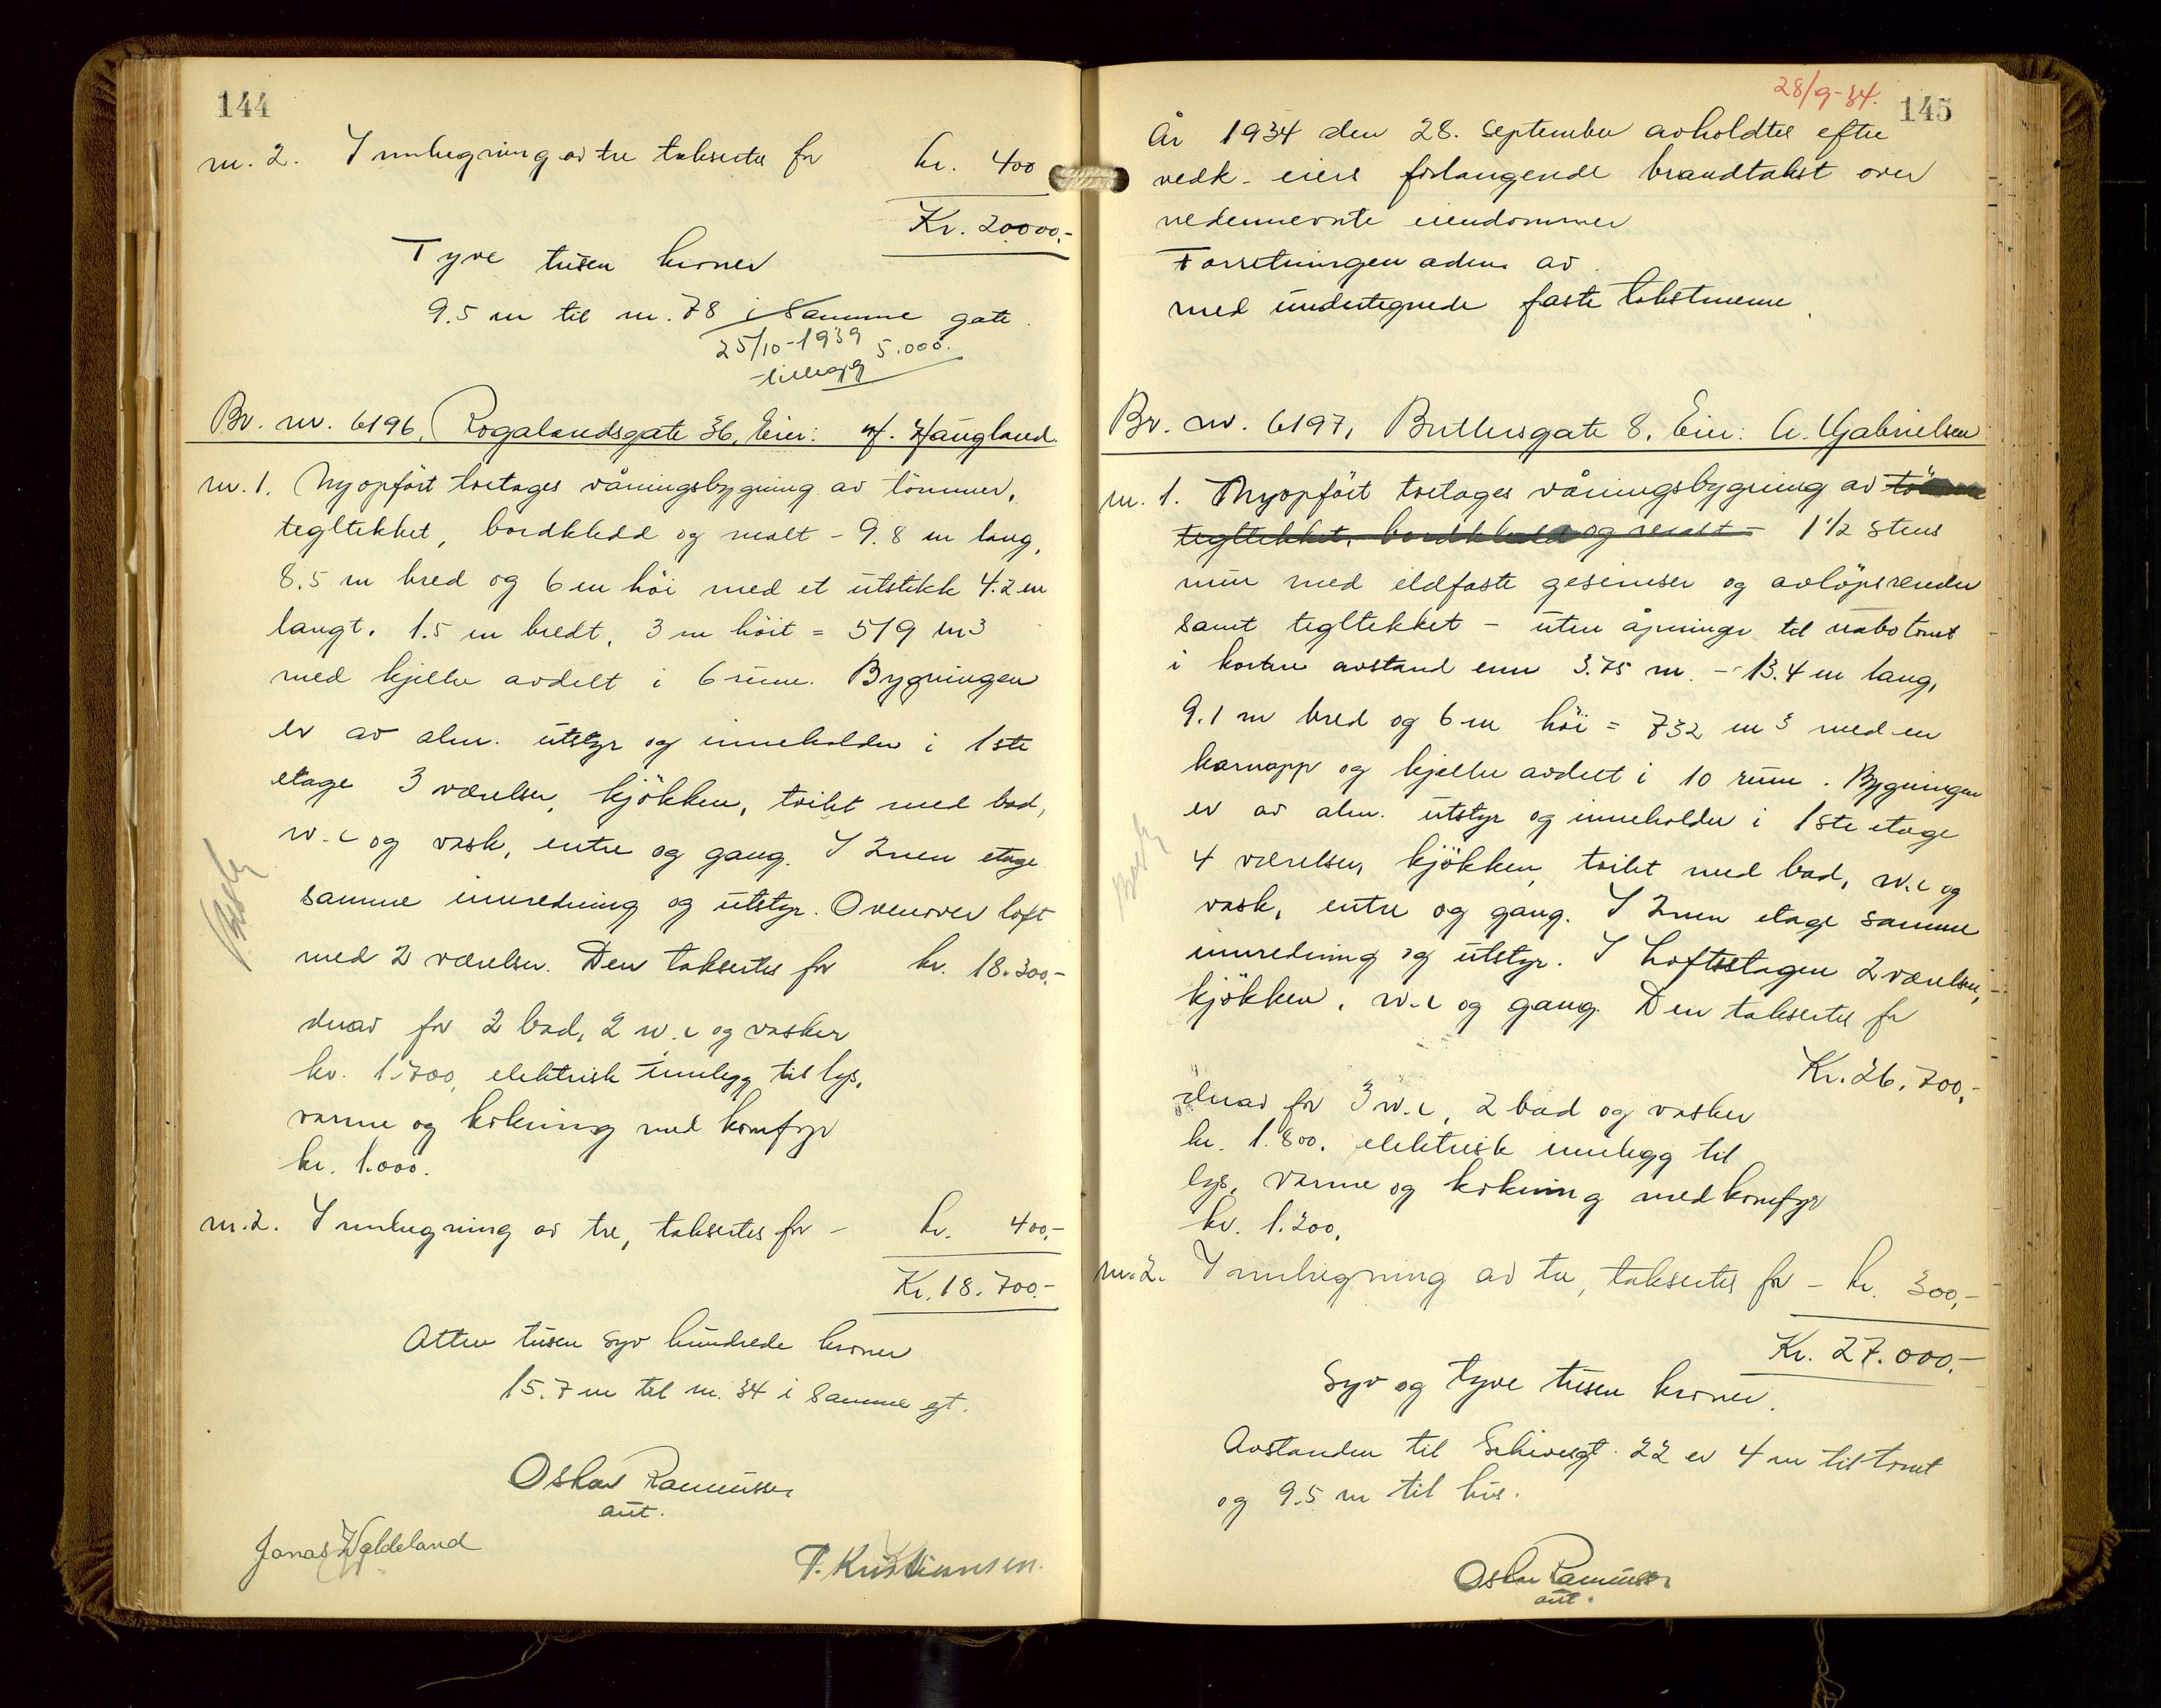 144
nr. 2. Innhegning av tre takseres for kr. 400
Kr. 20000,-
Tyve tusen kroner
9.5 m til nr. 78 i samme gate.
25/10-1939 5.000.
tillegg
Br. nr. 6196, Rogalandsgate 36, Eier: M. Haugland.
nr. 1. Nyopført toetages våningsbygning av tømmer,
tegltekket, bordkledd og malt - 9.8 m lang,
8.5 m bred og 6 m höi med et utstikk 4.2 m
langt, 1.5 m bredt, 3 m höit = 519 m3
med kjeller avdelt i 6 rum. Bygningen
er av alm. utstyr og inneholder i 1ste
etage 3 værelser, kjökken, toilet med bad,
w.c og vask, entre og gang. I 2nen etage
samme innredning og utstyr. Ovenover loft
med 2 værelser. Den takseres for kr. 18.300,-
derav for 2 bad, 2 w.c og vasker
kr. 1.700, elektrisk innlegg til lys,
varme og kokning med komfyr
kr. 1.000.
nr. 2. Innhegning av tre, takseres for - kr. 400,-
Kr. 18.700,-
Atten tusen syv hundrede kroner
15.7 m til nr. 34 i samme gt.
Oskar Rasmussen
aut.
Jonas Vældeland
T. Kristiansen.
28/9-34.
145
År 1934 den 28. september avholdtes efter
vedk. eiers forlangende brandtakst over
nedennevnte eiendommer
Forretningen adm. av
med undertegnede faste takstmenn.
Br. nr. 6197, Butlersgate 8. Eier: A. Gabrielsen
nr. 1. Nyopført toetages våningsbygning av tömmer
tegltekket, bordkledd og malt - 1 1/2 stens
mur med ildfaste gesimser og avlöpsrender
samt tegltekket - uten åpninger til nabotomt
i kortere avstand enn 3.75 m. - 13.4 m lang,
9.1 m bred og 6 m höi = 732 m3 med en
karnapp og kjeller avdelt i 10 rum. Bygningen
er av alm. utstyr og inneholder i 1ste etage
4 værelser, kjökken, toilet med bad, w.c og
vask, entre og gang. I 2nen etage samme
innredning og utstyr. I Loftsetagen 2 værelser,
kjökken, w.c og gang. Den takseres for
Kr. 26.700,-
derav for 3 w.c, 2 bad og vasker
kr. 1.800. elektrisk innlegg til
lys, varme og kokning med komfyr
kr. 1.200,
nr. 2. Innhegning av tre, takseres for - kr. 300,-
Kr. 27.000,-
Syv og tyve tusen kroner.
Avstanden til Schivesgt. 22 er 4 m til tomt
og 9.5 m til hus.
Oskar Rasmussen
aut.